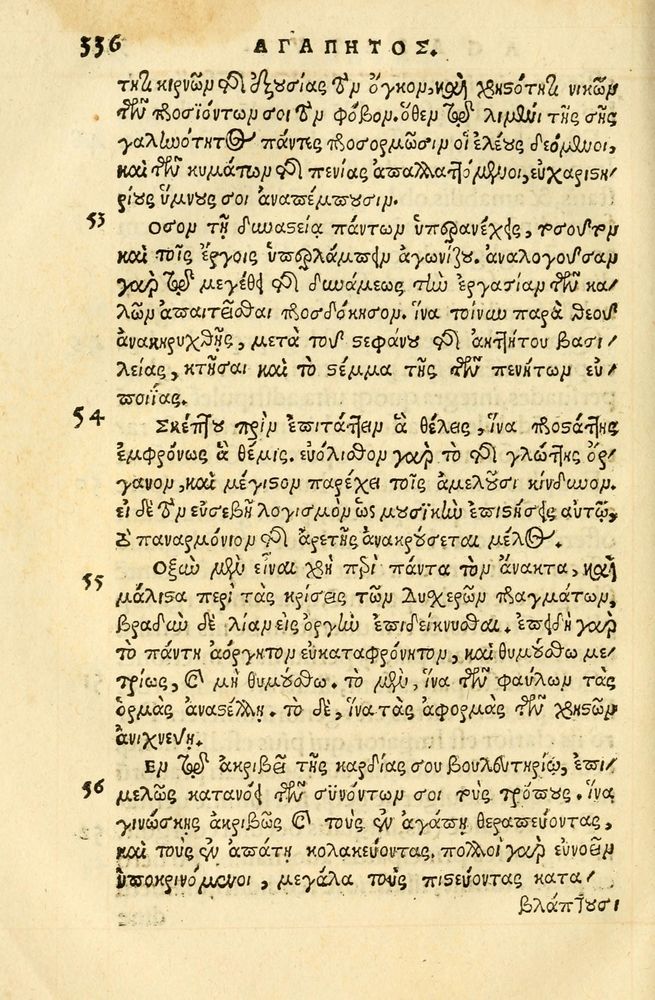 336 ΑΓΑΠΗΤΟΣ.
τητι κιρνῶν τῆς ἐξουσίας τὸν ὄγκον, καὶ χρηστότητι νικῶν
τῶν προσϊόντων σοι τὸν φόβον. ὅθεν τῷ λιμένι τῆς σῆς
γαλωότητος πάντες προσορμῶσιν οἱ ἐλέους δεόμενοι,
καὶ τῶν κυμάτων τῆς πενίας ἀπαλλαττόμενοι, εὐχαριστη/
ρίους ὕμνους σοι ἀναπέμπουσιν.
53 Οσον τῇ δυναστεία πάντων ὑπερανέχεις, τοσοῦτον
καὶ τοῖς ἔργοις ὑπερλάμπειν ἀγωνίζου. ἀναλογοῦσαν
γὰρ τῷ μεγέθει τῆς δυνάμεως τὴν ἐργασίαν τῶν κα-
λῶν ἀπαιτεῖσθαι προσδόκησον. ἵνα τοίνυν παρὰ θεοῦ
ἀνακηρυχθῇς, μετὰ τοῦ στεφάνου τῆς ἀηττήτου βασι/
λείας, κτῆσαι καὶ τὸ στέμμα τῆς τῶν πενήτων εὐ/
ποιΐας.
54 Σκέπτου πρὶν ἐπιτάττειν ἃ θέλεις, ἵνα προστάττῃς
ἐμφρόνως ἃ θέμις. εὐόλισθον γὰρ τὸ τῆς γλώττης ὄρ/
γανον, καὶ μέγιστον παρέχει τοῖς ἀμελοῦσι κίνδυνον.
εἰ δὲ τὸν εὐσεβῆ λογισμὸν ὡς μουσικὸν ἐπιστήσεις αὐτῷ,
τὸ παναρμόνιον τῆς ἀρετῆς ἀνακρούσεται μέλος.
55 Οξὺν μὲν εἶναι χρὴ περὶ πάντα τὸν ἄνακτα, καὶ
μάλιστα περὶ τὰς κρίσεις τῶν δυσχερῶν πραγμάτων,
βραδὺν δὲ λίαν εἰς ὀργὴν ἐπιδείκνυσθαι. ἐπειδὴ γὰρ
τὸ πάντη ἀόργητον εὐκαταφρόνητον, καὶ θυμούσθω με-
τρίως, καὶ μὴ θυμούσθω. τὸ μὲν, ἵνα τῶν φαύλων τὰς
ὁρμὰς ἀναστέλλῃ. τὸ δὲ, ἵνα τὰς ἀφορμὰς τῶν χρηστῶν
ἀνιχνεύῃ.
56 Εν τῷ ἀκριβεῖ τῆς καρδίας σου βουλευτηρίῳ, ἐπι/
μελῶς κατανόει τῶν σϋνόντων σοι τοὺς τρόπους. ἵνα
γινώσκῃς ἀκριβῶς καὶ τοὺς ἐν ἀγάπῃ θεραπεύοντας,
καὶ τοὺς ἐν ἀπάτῃ κολακεύοντας. πολλοὶ γὰρ εὐνοεῖν
ὑποκρινόμενοι, μεγάλα τοὺς πιστεύοντας κατα/
βλάπτουσι